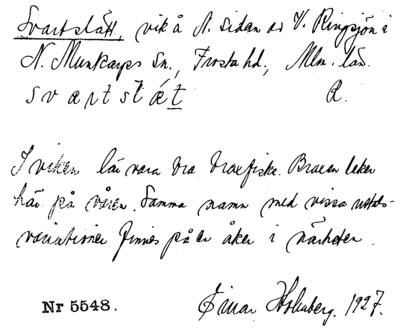 Svartslätt, vik å N. sidan av V. Ringsjön i
N. Munkarps Sn., Frosta hd., Mlm. län.
svartslæt R.
I viken lär vara bra braxfiske. Braxen leker
här på våren. Samma namn med vissa uttals-
variationer finnes på en åker i närheten.
Nr 5548. Einar Holmberg. 1927.